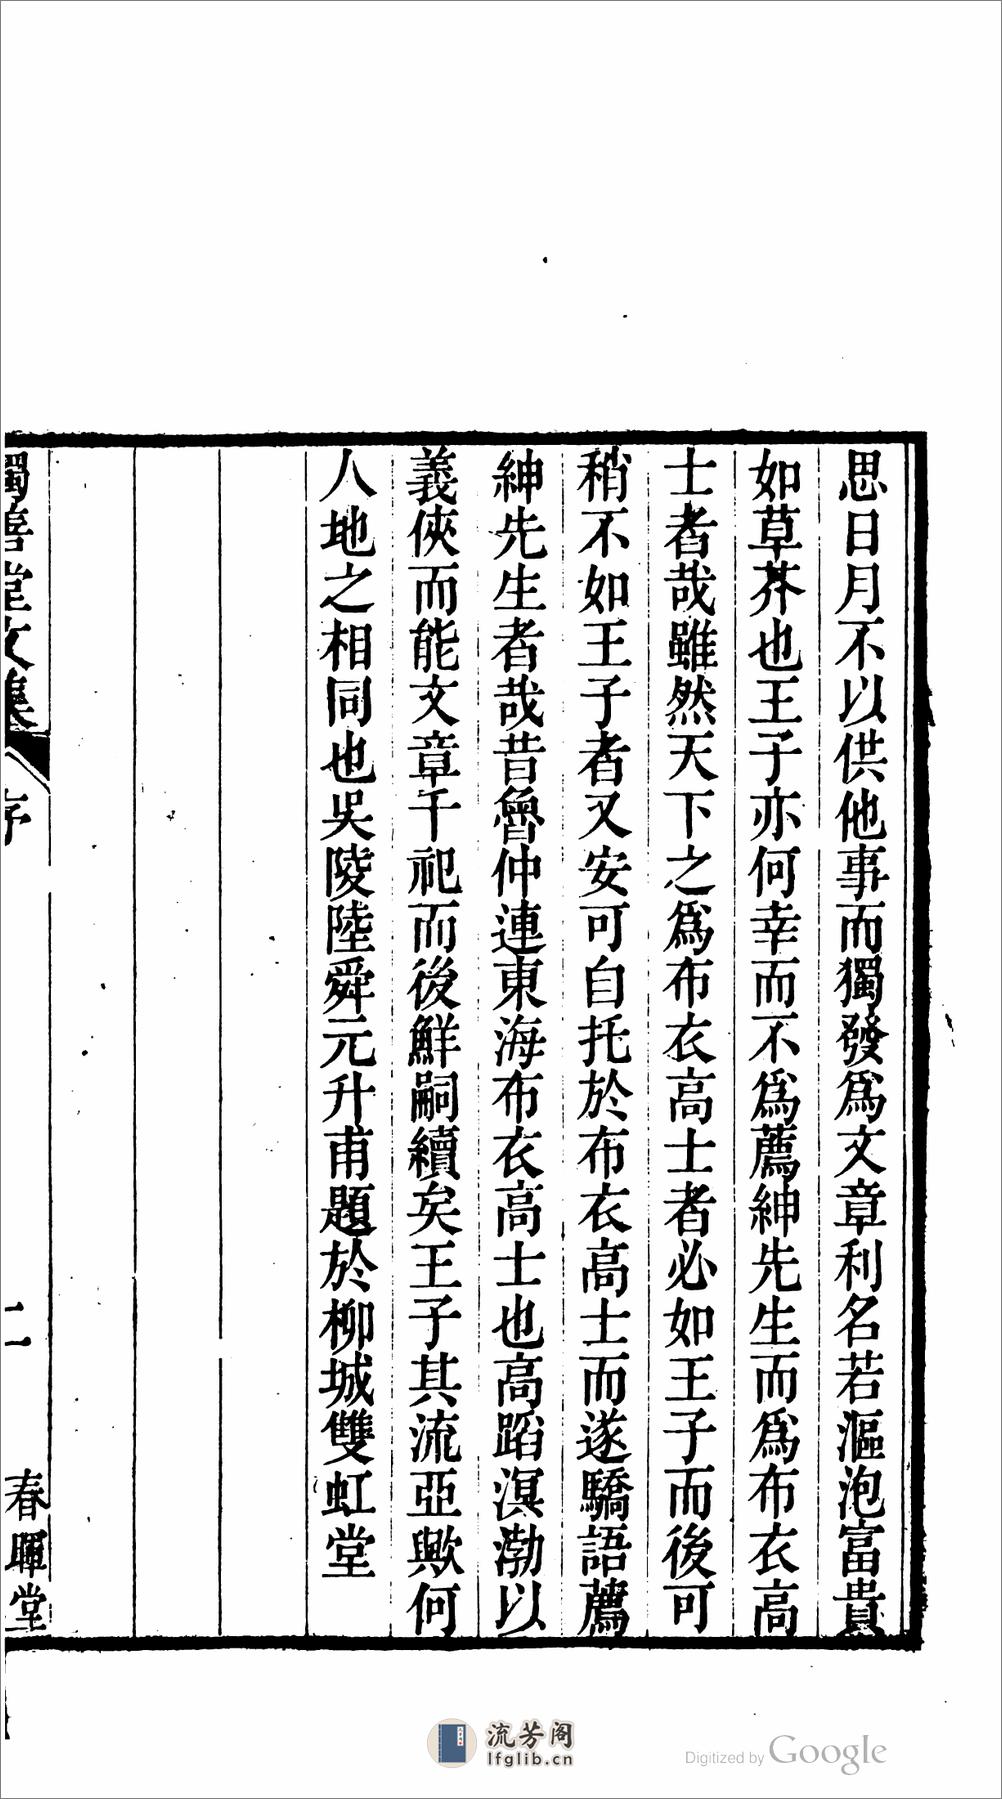 思日月不以供他事而獨發爲文章利名若漚泡富貴
如草芥也王子亦何幸而不爲薦紳先生而爲布衣高
士者哉雖然天下之爲布衣高士者必如王子而後可
稍不如王子者又安可自托於布衣高士而遂驕語薦
紳先生者哉昔魯仲連東海布衣高士也高蹈溟渤以
義俠而能文章千祀而後鮮嗣續矣王子其流亞歟何
人地之相同也吳陵陸舜元升甫題於柳城雙虹堂
獨善堂文集 序 二 春暉堂
流芳阁
lfglib.cn
Digitized by Google